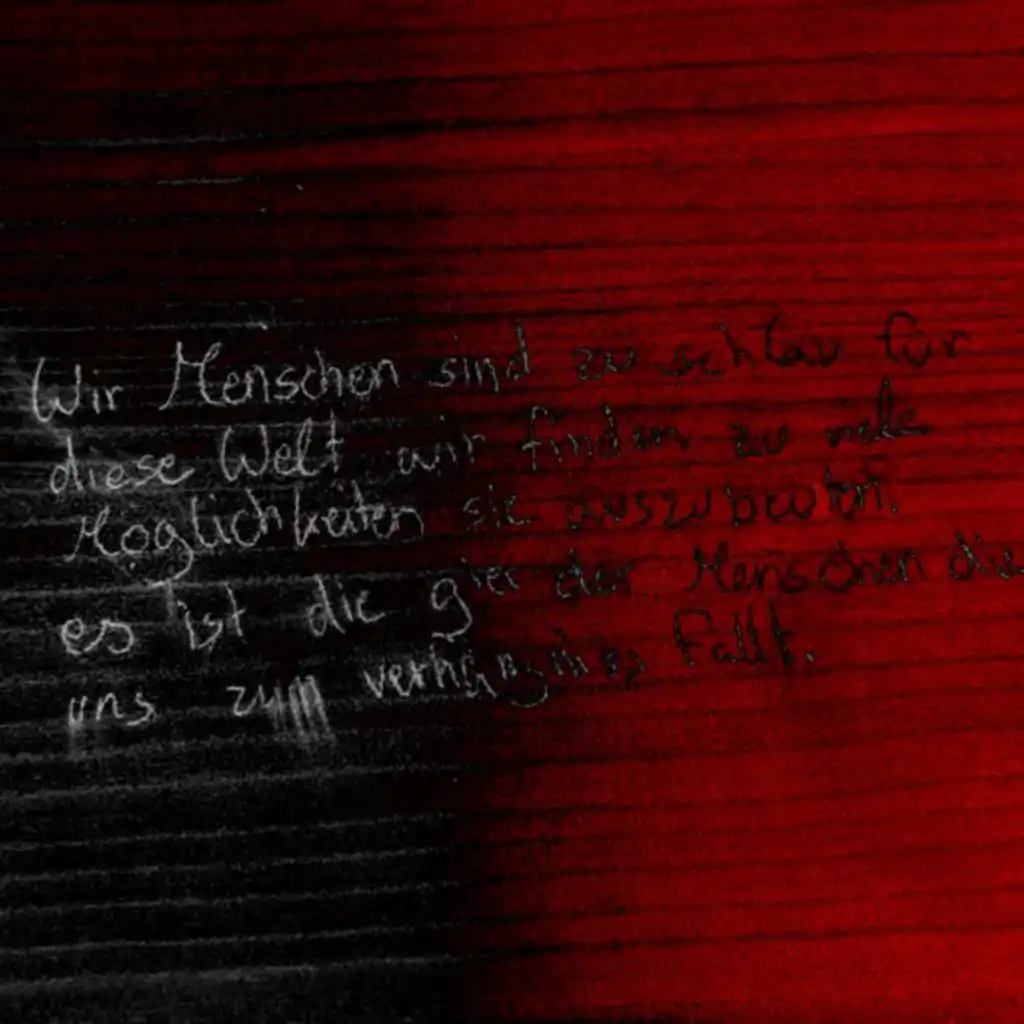 Wir Menschen sind zu schlau für
diese Welt wir finden zu viele
Möglichkeiten sie auszubeuten.
es ist die gier der Menschen die
uns zum verhängniss fällt.